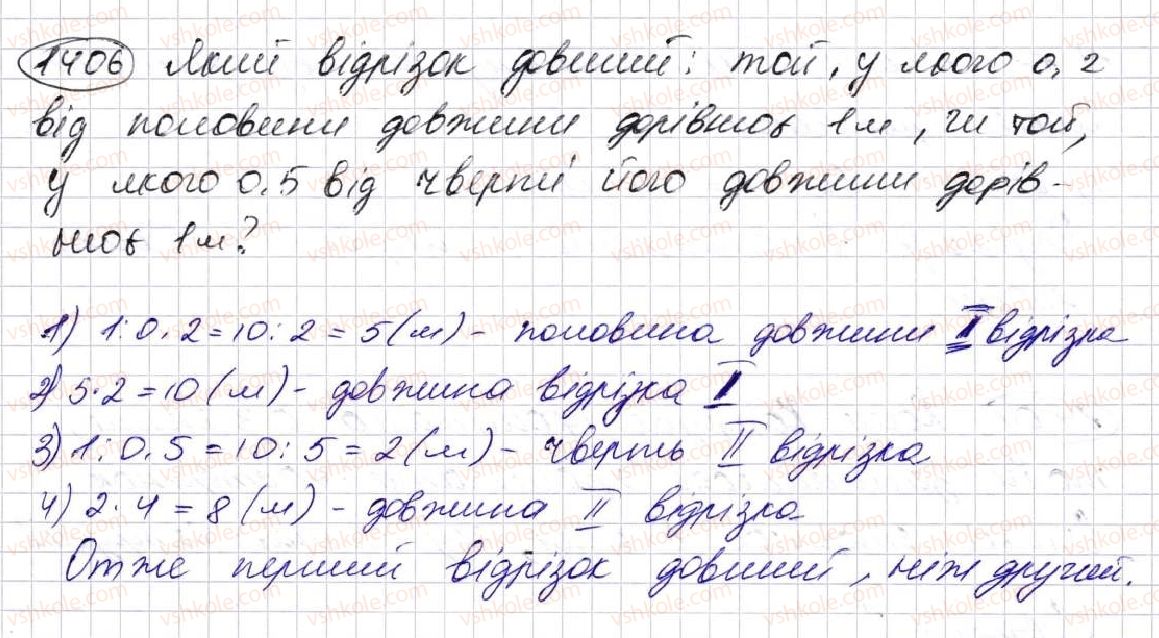 1406 Який відрізок довший: той, у якого 0,2
від половини довжини дорівнює 1м, чи той,
у якого 0,5 від чверті його довжини дорів-
нює 1м?
1) 1:0,2=10:2=5(м)- половина довжини I відрізка
2) 5·2=10(м)- довжина відрізка I
3) 1:0,5=10:5=2(м)- чверть II відрізка
4) 2·4=8(м)- довжина II відрізка
Отже перший відрізок довший, ніж другий.